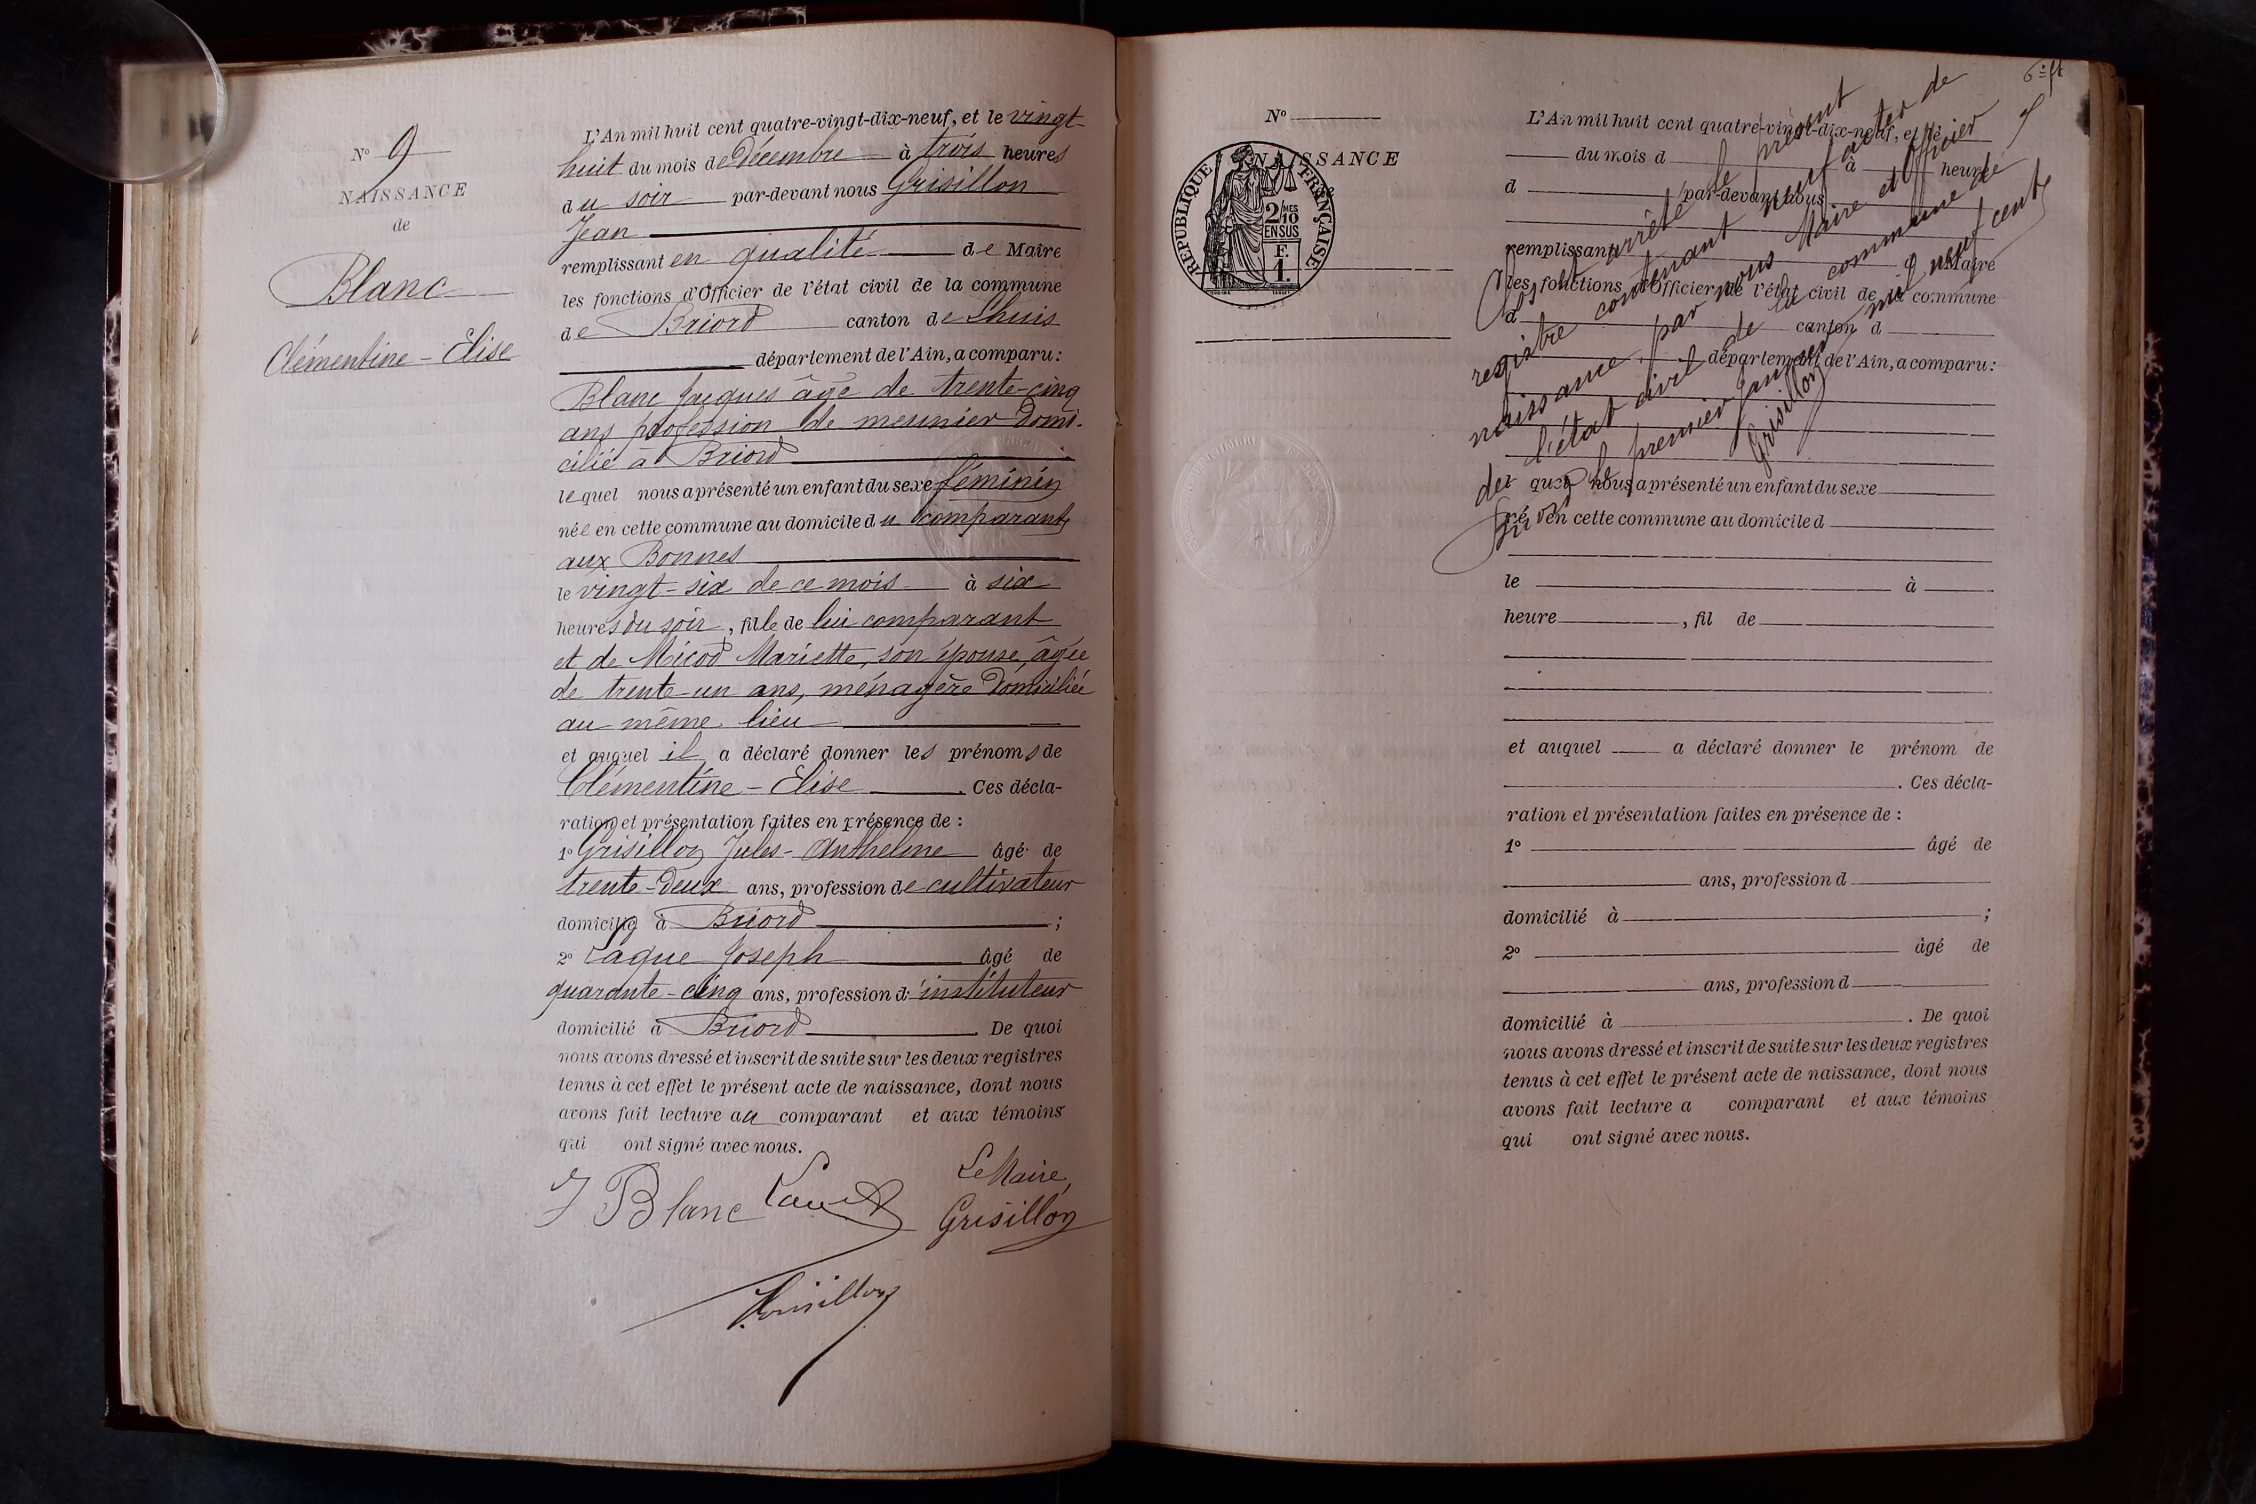 N° 9
NAISSANCE
de
Blanc
Clémentine - Elise
L'An mil huit cent quatre-vingt-dix-neuf, et le vingt
huit du mois de Décembre à trois heures
du soir par-devant nous Grisillon
Jean
remplissant en qualité de Maire
les fonctions d'Officier de l'état civil de la commune
de Briord canton de Lhuis
département de l'Ain, a comparu :
Blanc Jacques âgé de trente-cinq
ans profession de meunier domi-
cilié à Briord
lequel nous a présenté un enfant du sexe féminin
née en cette commune au domicile du comparant
aux Bonnes
le vingt-six de ce mois à six
heures du soir, fille de lui comparant
et de Micod Mariette, son épouse, âgée
de trente-un ans, ménagère domiciliée
au même lieu
et auquel il a déclaré donner les prénoms de
Clémentine - Elise . Ces décla-
ration et présentation faites en présence de :
1° Grisillon Jules - Anthelme âgé de
trente-deux ans, profession de cultivateur
domicilié à Briord ;
2° Joseph âgé de
quarante-cinq ans, profession d'instituteur
domicilié à Briord . De quoi
nous avons dressé et inscrit de suite sur les deux registres
tenus à cet effet le présent acte de naissance, dont nous
avons fait lecture au comparant et aux témoins
qui ont signé avec nous.
J Blanc
Le Maire,
Grisillon
Grisillon
6e ft
N°
NAISSANCE
RÉPUBLIQUE FRANÇAISE
2/10 MES
EN SUS
F.
1.
L'An mil huit cent quatre-vingt-dix-neuf, et le
du mois d à heure
d par-devant nous
remplissant d Maire
les fonctions d'Officier de l'état civil de la commune
d canton d
département de l'Ain, a comparu :
quel nous a présenté un enfant du sexe
né en cette commune au domicile d
le à
heure , fil de
et auquel a déclaré donner le prénom de
. Ces décla-
ration et présentation faites en présence de :
1° âgé de
ans, profession d
domicilié à ;
2° âgé de
ans, profession d
domicilié à . De quoi
nous avons dressé et inscrit de suite sur les deux registres
tenus à cet effet le présent acte de naissance, dont nous
avons fait lecture a comparant et aux témoins
qui ont signé avec nous.
Clos et arrêté le présent
registre contenant neuf actes de
naissance par nous Maire et Officier
de l'état civil de la commune de
Briord le premier Janvier mil neuf cent
Grisillon